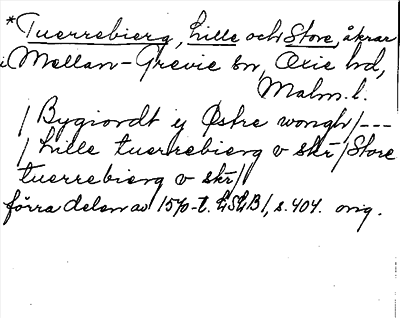 *Tuerrebierg, Lille och Store, åkrar
i Mellan-Grevie sn, Oxie hd,
Malm.l.
/ Bygiordt ij Østre wongh/---
/ Lille tuerrebierg v skr/Store
tuerrebierg v skr/
förra delen av 1570-t. LSLB1, s.404. orig.